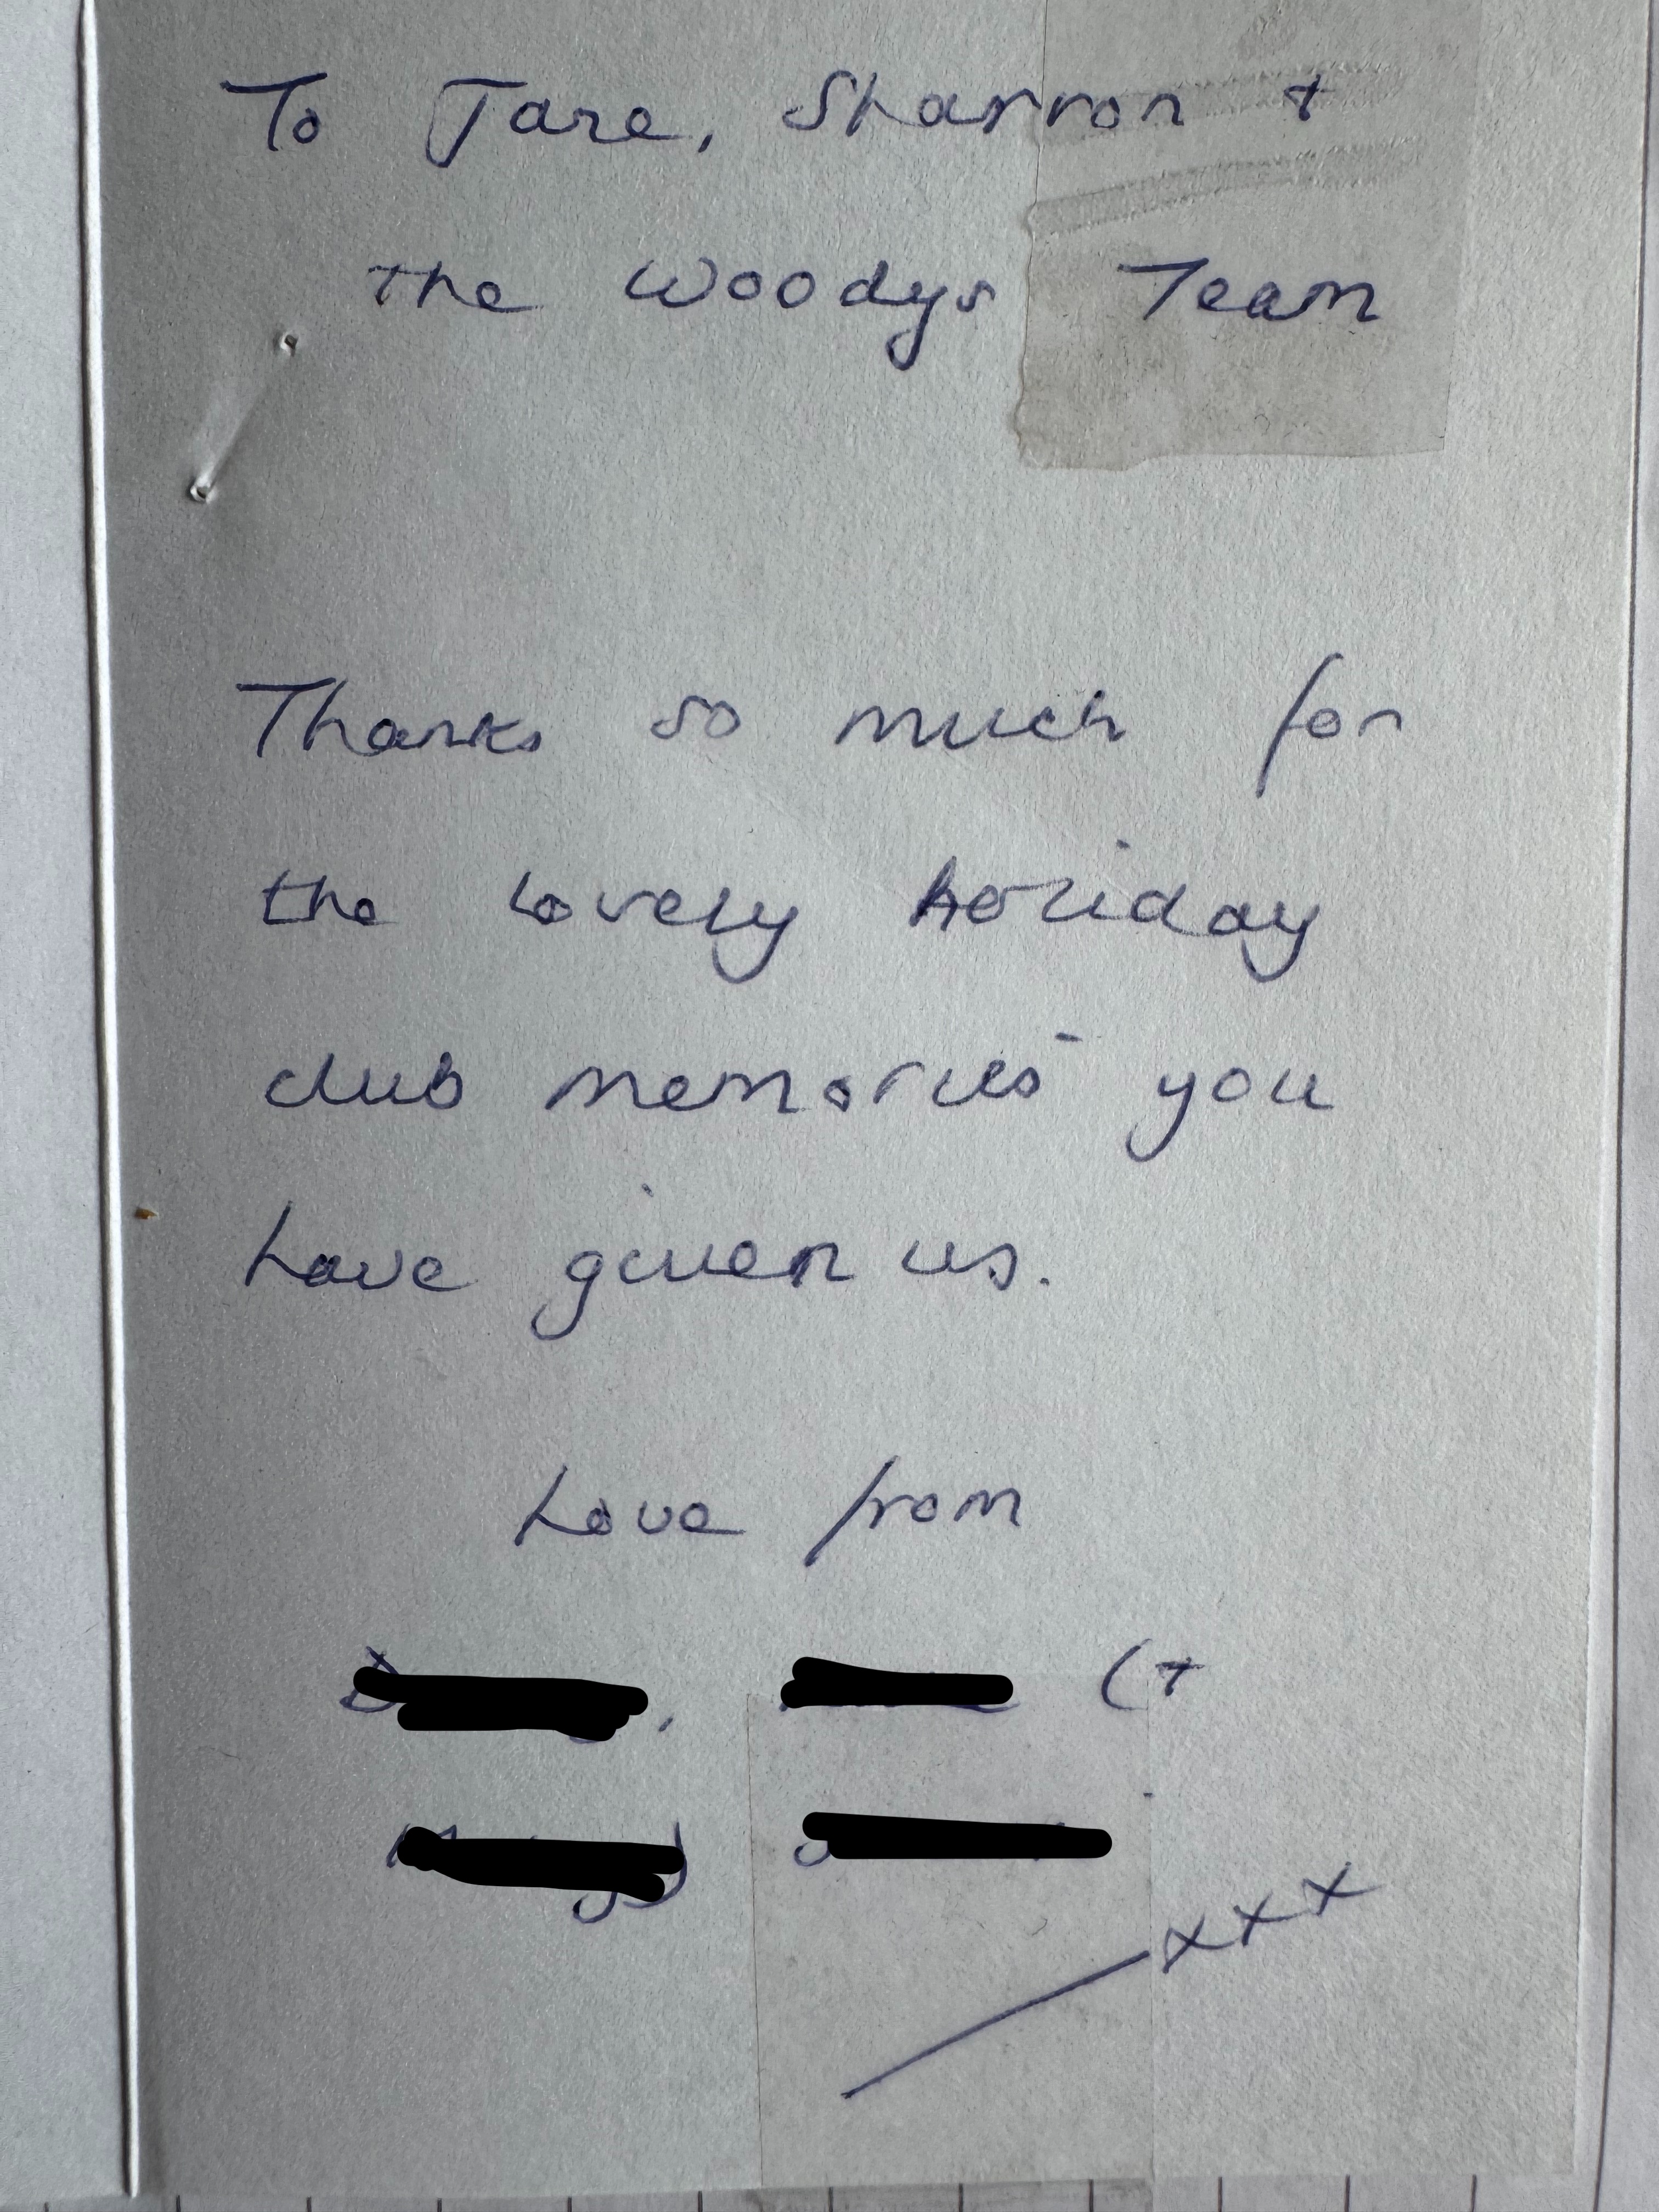 To Jane, Sharron +
the Woodys Team
Thanks so much for
the lovely holiday
club memories you
have given us.
Love from
(+
xxx